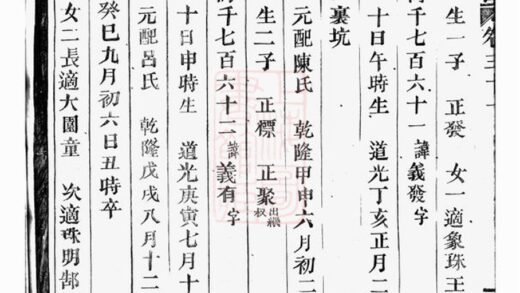 卷三十一
生一子 正發 女一適象珠王
千七百六十一 諱義發字
十日午時生 道光丁亥正月二
裏坑
元配陳氏 乾隆甲申六月初二
生二子 正標 正聚出繼權
千七百六十二 諱義有字
十日申時生 道光庚寅七月十
元配呂氏 乾隆戊戌八月十二
癸巳九月初六日丑時卒
女二長適大園童 次適珠明郜